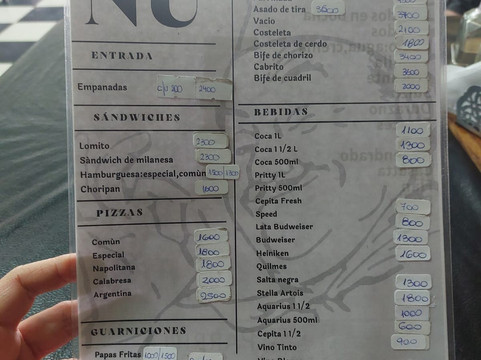 NU
ENTRADA
Empanadas c/u 200 2400
SÁNDWICHES
Lomito 2500
Sàndwich de milanesa 2300
Hamburguesa:especial,comùn
Choripan 1600
PIZZAS
Comùn 1600
Especial 1800
Napolitana 1800
Calabresa 2000
Argentina 2500
GUARNICIONES
Papas Fritas
Asado de tira 3600
Vacio 3400
Costeleta 2100
Costeleta de cerdo 1800
Bife de chorizo 3400
Cabrito 3800
Bife de cuadril 2000
BEBIDAS
Coca 1L 1100
Coca 1 1/2 L 1300
Coca 500ml 800
Pritty 1L
Pritty 500ml
Cepita Fresh 700
Speed 800
Lata Budweiser
Budweiser 1300
Heiniken 1600
Quilmes
Salta negra 1300
Stella Artois 1800
Aquarius 1 1/2 1000
Aquarius 500ml 600
Cepita 1 1/2 900
Vino Tinto